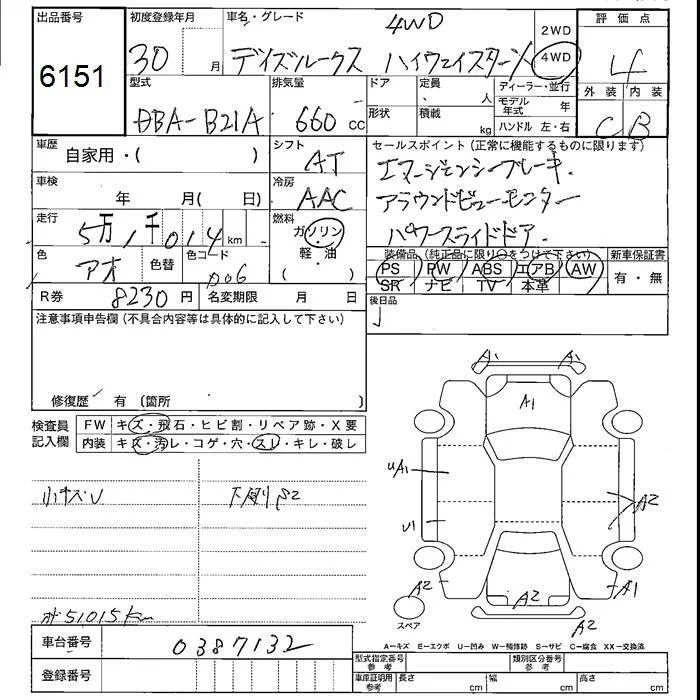 出品番号
6151
初度登録年月
30 月
車名・グレード 4WD
デイズルークス ハイウェイスターX
2WD
4WD
評価点
4
外装 内装
C B
型式
DBA-B21A
排気量
660 cc
ドア
形状
定員 人
積載 kg
ディーラー・並行
モデル年式 年
ハンドル 左・右
車歴
自家用・( )
シフト
AT
セールスポイント (正常に機能するものに限ります)
エマージェンシーブレーキ.
アラウンドビューモニター
パワースライドドア.
車検
年 月( 日)
冷房
AAC
走行
5万1千014 km
燃料
ガソリン
・軽油・
( )
色
アオ
色替
色コード
装備品 (純正品に限り○をつけて下さい)
PS PW ABS エアB AW
SR ナビ TV 本革
新車保証書
有・無
R券 8230 円
名変期限 月 日
後日品
注意事項申告欄 (不具合内容等は具体的に記入して下さい)
修復歴 有 (箇所 )
検査員
記入欄
FW キズ・飛石・ヒビ割・リペア跡・X要
内装 キズ・汚レ・コゲ・穴・スレ・キレ・破レ
小キズU
下廻りS2
51015km
A1 A1
A1
UA1
U1
A2
A2
A1
A2
A2
スペア
A-キズ E-エクボ U-凹み W-補修跡 S-サビ C-腐食 XX-交換済
車台番号 0387132
登録番号
型式指定番号
参考
類別区分番号
参考
車庫証明用
参考
長さ cm
幅 cm
高さ cm